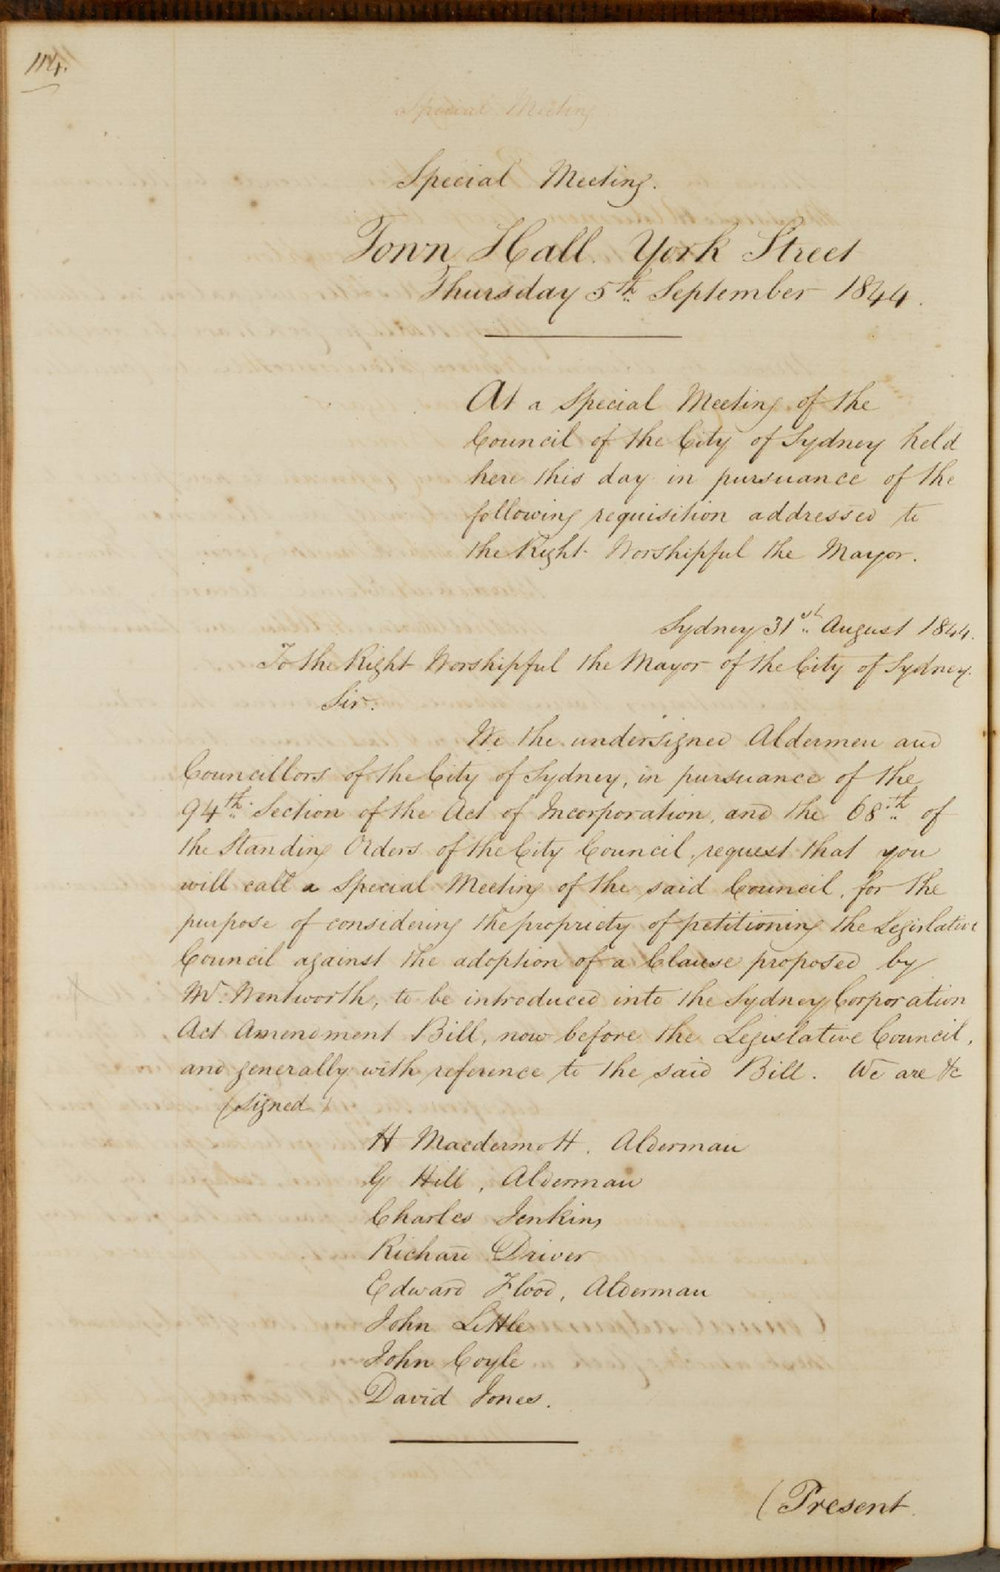 114.
Special Meeting
Special Meeting.
Town Hall. York Street
Thursday 5th September 1844.
At a Special Meeting of the
Council of the City of Sydney held
here this day in pursuance of the
following requisition addressed to
the Right Worshipful the Mayor.
Sydney 31st August 1844.
To the Right Worshipful the Mayor of the City of Sydney.
Sir.
We the undersigned Aldermen and
Councillors of the City of Sydney, in pursuance of the
94th Section of the Act of Incorporation, and the 68th of
the Standing Orders of the City Council, request that you
will call a Special Meeting of the said Council, for the
purpose of considering the propriety of petitioning the Legislative
Council against the adoption of a Clause proposed by
Mr. Wentworth, to be introduced into the Sydney Corporation
Act Amendment Bill, now before the Legislative Council,
and generally with reference to the said Bill. We are &c
(signed)
H Macdermott. Alderman
G Hill, Alderman
Charles Jenkins
Richard Driver
Edward Flood, Alderman
John Little
John Coyle
David Jones.
(Present